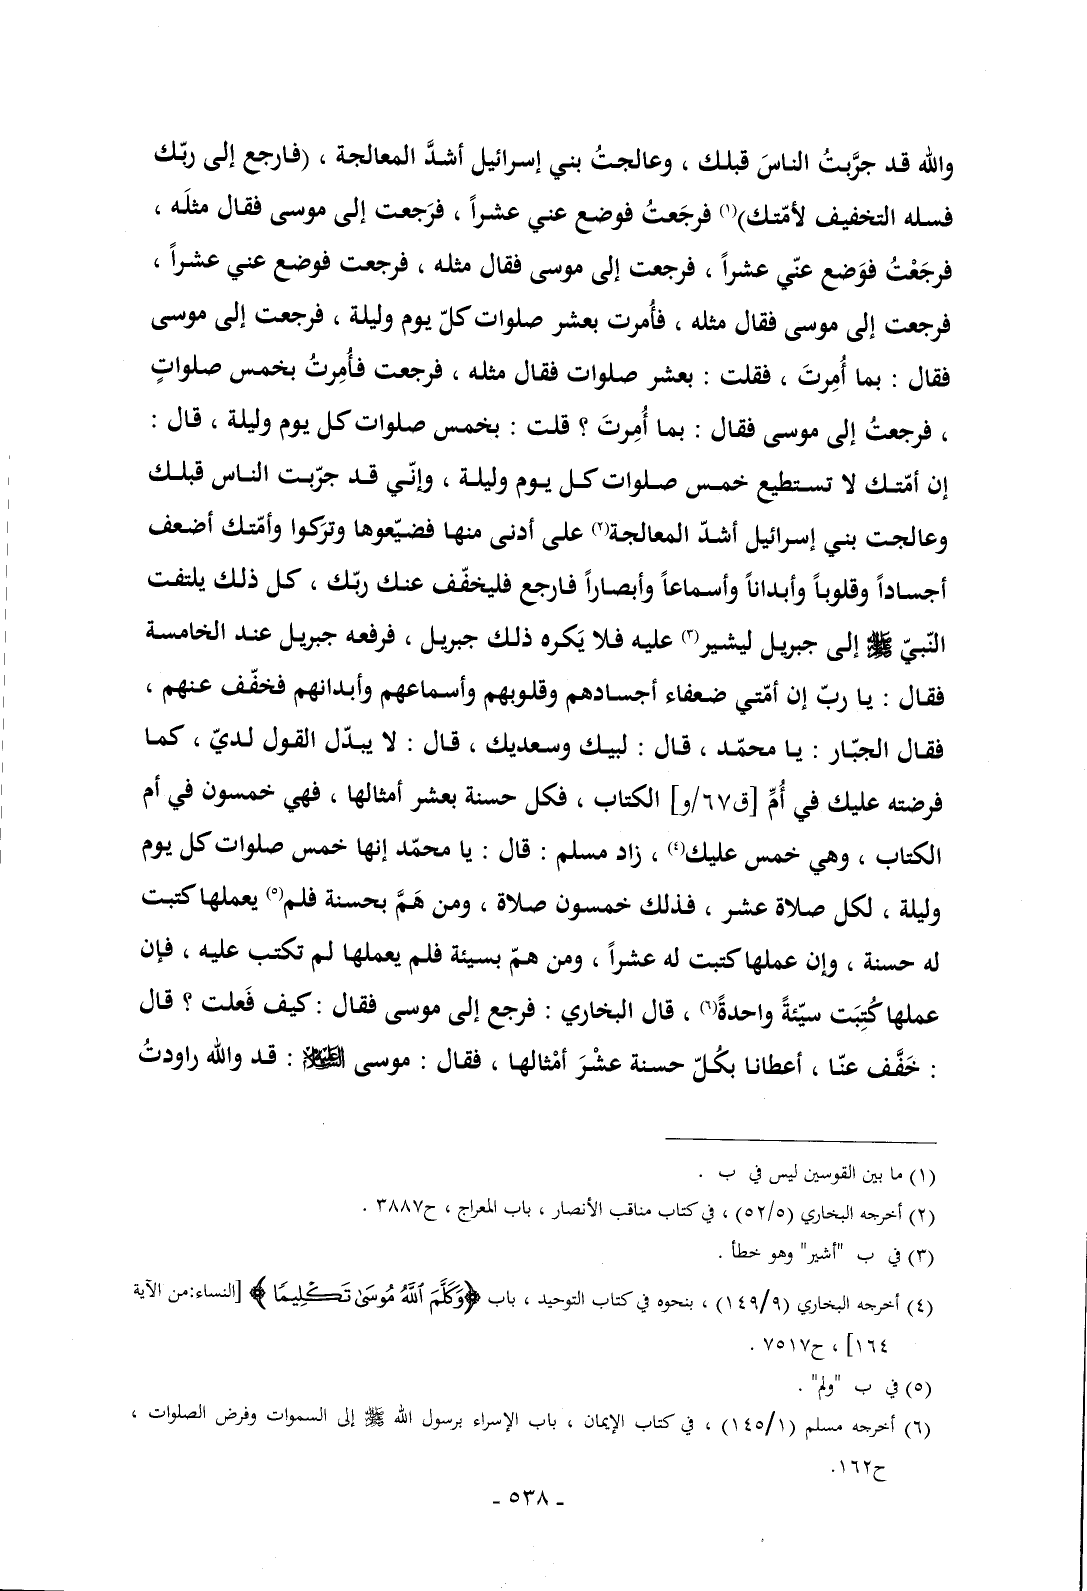 والله قد جرَّبتُ الناسَ قبلك ، وعالجتُ بني إسرائيل أشدَّ المعالجة ، (فارجع إلى ربّك
فسله التخفيف لأمّتك)(١) فرجَعتُ فوضع عني عشراً ، فرَجعت إلى موسى فقال مثلَه ،
فرجَعْتُ فوَضع عنّي عشراً ، فرجعت إلى موسى فقال مثله ، فرجعت فوضع عني عشراً ،
فرجعت إلى موسى فقال مثله ، فأُمرت بعشر صلوات كلّ يوم وليلة ، فرجعت إلى موسى
فقال : بما أُمِرتَ ، فقلت : بعشر صلوات فقال مثله ، فرجعت فأُمِرتُ بخمس صلواتٍ
، فرجعتُ إلى موسى فقال : بما أُمِرتَ ؟ قلت : بخمس صلوات كل يوم وليلة ، قال :
إن أمّتك لا تستطيع خمس صلوات كل يوم وليلة ، وإنّي قد جرّبت الناس قبلك
وعالجت بني إسرائيل أشدّ المعالجة(٢) على أدنى منها فضيّعوها وتركوا وأمّتك أضعف
أجساداً وقلوباً وأبداناً وأسماعاً وأبصاراً فارجع فليخفّف عنك ربّك ، كل ذلك يلتفت
النّبيّ ﷺ إلى جبريل ليشير(٣) عليه فلا يَكره ذلك جبريل ، فرفعه جبريل عند الخامسة
فقال : يا ربّ إن أمّتي ضعفاء أجسادهم وقلوبهم وأسماعهم وأبدانهم فخفّف عنهم ،
فقال الجبّار : يا محمّد ، قال : لبيك وسعديك ، قال : لا يبدّل القول لديّ ، كما
فرضته عليك في أُمِّ [ق٦٧/و] الكتاب ، فكل حسنة بعشر أمثالها ، فهي خمسون في أم
الكتاب ، وهي خمس عليك(٤) ، زاد مسلم : قال : يا محمّد إنها خمس صلوات كل يوم
وليلة ، لكل صلاة عشر ، فذلك خمسون صلاة ، ومن هَمَّ بحسنة فلم(٥) يعملها كتبت
له حسنة ، وإن عملها كتبت له عشراً ، ومن همّ بسيئة فلم يعملها لم تكتب عليه ، فإن
عملها كُتِبَت سيّئةً واحدةً(٦) ، قال البخاري : فرجع إلى موسى فقال : كيف فَعلت ؟ قال
: خَفَّف عنّا ، أعطانا بكُلّ حسنة عشْرَ أمْثالها ، فقال : موسى العَلَيْهِ السَّلام : قد والله راودتُ
(١) ما بين القوسين ليس في ب .
(٢) أخرجه البخاري (٥٢/٥) ، في كتاب مناقب الأنصار ، باب المعراج ، ح٣٨٨٧ .
(٣) في ب "أشير" وهو خطأ .
(٤) أخرجه البخاري (١٤٩/٩) ، بنحوه في كتاب التوحيد ، باب ﴿وَكَلَّمَ ٱللَّهُ مُوسَىٰ تَكْلِيمًا﴾ [النساء:من الآية
١٦٤] ، ح٧٥١٧ .
(٥) في ب "ولم" .
(٦) أخرجه مسلم (١٤٥/١) ، في كتاب الإيمان ، باب الإسراء برسول الله ﷺ إلى السموات وفرض الصلوات ،
ح١٦٢.
- ٥٣٨ -